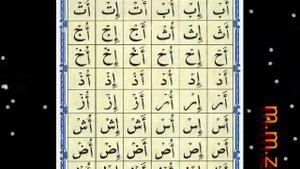 أَبْ إِبْ أُبْ أَتْ إِتْ أُتْ
أَثْ إِثْ أُثْ أَجْ إِجْ أُجْ
أَحْ إِحْ أُحْ أَخْ إِخْ أُخْ
أَدْ إِدْ أُدْ أَذْ إِذْ أُذْ
أَرْ إِرْ أُرْ أَزْ إِزْ أُزْ
أَسْ إِسْ أُسْ أَشْ إِشْ أُشْ
أَصْ إِصْ أُصْ أَضْ إِضْ أُضْ
m.m.z